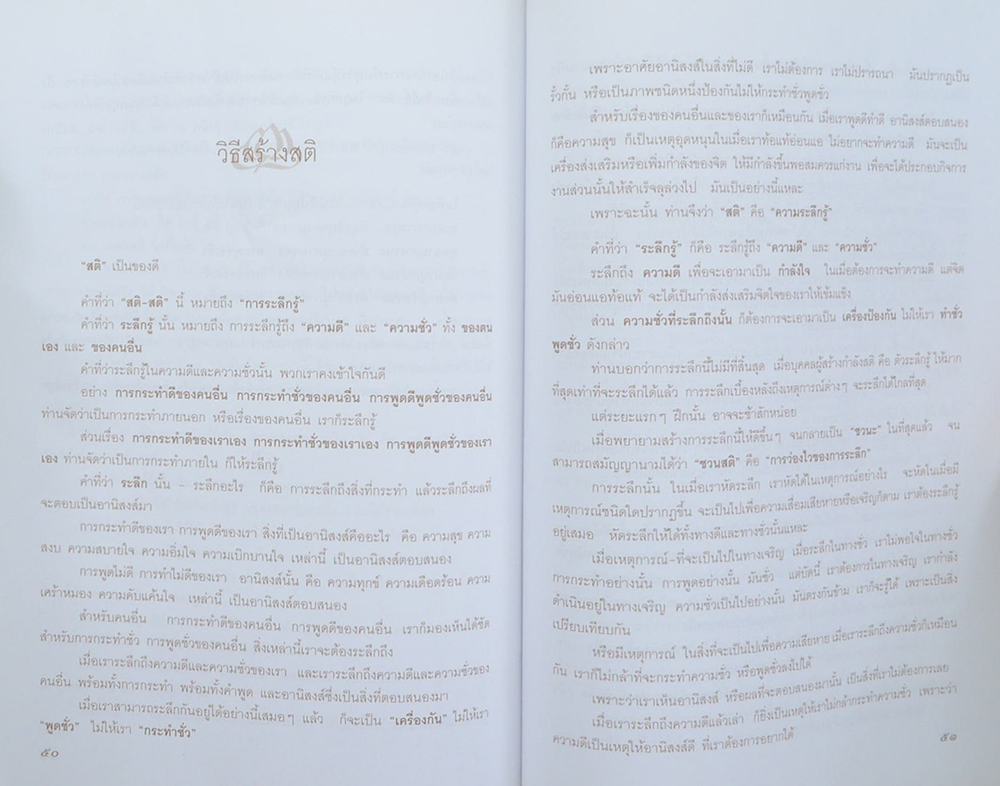 วิธีสร้างสติ
"สติ" เป็นของดี
คำที่ว่า "สติ-สติ" นี้ หมายถึง "การระลึกรู้"
คำที่ว่า ระลึกรู้ นั้น หมายถึง การระลึกรู้ถึง "ความดี" และ "ความชั่ว" ทั้ง ของตน
เอง และ ของคนอื่น
คำที่ว่าระลึกรู้ในความดีและความชั่วนั้น พวกเราคงเข้าใจกันดี
อย่าง การกระทำดีของคนอื่น การกระทำชั่วของคนอื่น การพูดดีพูดชั่วของคนอื่น
ท่านจัดว่าเป็นการกระทำภายนอก หรือเรื่องของคนอื่น เราก็ระลึกรู้
ส่วนเรื่อง การกระทำดีของเราเอง การกระทำชั่วของเราเอง การพูดดีพูดชั่วของเรา
เอง ท่านจัดว่าเป็นการกระทำภายใน ก็ให้ระลึกรู้
คำที่ว่า ระลึก นั้น – ระลึกอะไร ก็คือ การระลึกถึงสิ่งที่กระทำ แล้วระลึกถึงผลที่
จะตอบเป็นอานิสงส์มา
การกระทำดีของเรา การพูดดีของเรา สิ่งที่เป็นอานิสงส์คืออะไร คือ ความสุข ความ
สงบ ความสบายใจ ความอิ่มใจ ความเบิกบานใจ เหล่านี้ เป็นอานิสงส์ตอบสนอง
การพูดไม่ดี การทำไม่ดีของเรา อานิสงส์นั้น คือ ความทุกข์ ความเดือดร้อน ความ
เศร้าหมอง ความคับแค้นใจ เหล่านี้ เป็นอานิสงส์ตอบสนอง
สำหรับคนอื่น การกระทำดีของคนอื่น การพูดดีของคนอื่น เราก็มองเห็นได้ชัด
สำหรับการกระทำชั่ว การพูดชั่วของคนอื่น สิ่งเหล่านี้เราจะต้องระลึกถึง
เมื่อเราระลึกถึงความดีและความชั่วของเรา และเราระลึกถึงความดีและความชั่วของ
คนอื่น พร้อมทั้งการกระทำ พร้อมทั้งคำพูด และอานิสงส์ซึ่งเป็นสิ่งที่ตอบสนองมา
เมื่อเราสามารถระลึกกันอยู่ได้อย่างนี้เสมอๆ แล้ว ก็จะเป็น "เครื่องกัน" ไม่ให้เรา
"พูดชั่ว" ไม่ให้เรา "กระทำชั่ว"
๕๐
เพราะอาศัยอานิสงส์ในสิ่งที่ไม่ดี เราไม่ต้องการ เราไม่ปรารถนา มันปรากฏเป็น
รั้วกั้น หรือเป็นภาพชนิดหนึ่งป้องกันไม่ให้กระทำชั่วพูดชั่ว
สำหรับเรื่องของคนอื่นและของเราก็เหมือนกัน เมื่อพูดดีทำดี อานิสงส์ตอบสนอง
ก็คือความสุข ก็เป็นเหตุอุดหนุนในเมื่อเราท้อแท้อ่อนแอ ไม่อยากจะทำความดี มันจะเป็น
เครื่องส่งเสริมหรือเพิ่มกำลังของจิต ให้มีกำลังขึ้นพอสมควรแก่งาน เพื่อจะได้ประกอบกิจการ
งานส่วนนั้นให้สำเร็จลุล่วงไป มันเป็นอย่างนี้แหละ
เพราะฉะนั้น ท่านจึงว่า "สติ" คือ "ความระลึกรู้"
คำที่ว่า "ระลึกรู้" ก็คือ ระลึกรู้ถึง "ความดี" และ "ความชั่ว"
ระลึกถึง ความดี เพื่อจะเอามาเป็น กำลังใจ ในเมื่อต้องการจะทำความดี แต่จิต
มันอ่อนแอท้อแท้ จะได้เป็นกำลังส่งเสริมจิตใจของเราให้เข้มแข็ง
ส่วน ความชั่วที่ระลึกถึงนั้น ก็ต้องการจะเอามาเป็น เครื่องป้องกัน ไม่ให้เรา ทำชั่ว
พูดชั่ว ดังกล่าว
ท่านบอกว่าการระลึกนี้ไม่มีที่สิ้นสุด เมื่อบุคคลผู้สร้างกำลังสติ คือ ตัวระลึกรู้ ให้มาก
ที่สุดเท่าที่จะระลึกได้แล้ว การระลึกเบื้องหลังถึงเหตุการณ์ต่างๆ จะระลึกได้ไกลที่สุด
แต่ระยะแรกๆ ฝึกนั้น อาจจะช้าสักหน่อย
เมื่อพยายามสร้างการระลึกนี้ให้ดีขึ้นๆ จนกลายเป็น "ชวนะ" ในที่สุดแล้ว จน
สามารถสมัญญานามได้ว่า "ชวนสติ" คือ "การว่องไวของการระลึก"
การระลึกนั้น ในเมื่อเราหัดระลึก เราหัดได้ในเหตุการณ์อย่างไร จะหัดในเมื่อมี
เหตุการณ์ชนิดใดปรากฏขึ้น จะเป็นไปเพื่อความเสื่อมเสียหายหรือเจริญก็ตาม เราต้องระลึกรู้
อยู่เสมอ หัดระลึกให้ได้ทั้งทางดีและทางชั่วนั้นแหละ
เมื่อเหตุการณ์-ที่จะเป็นไปในทางเจริญ เมื่อระลึกในทางชั่ว เราไม่พอใจในทางชั่ว
การกระทำอย่างนั้น การพูดอย่างนั้น มันชั่ว แต่บัดนี้ เราต้องการในทางเจริญ เรากำลัง
ดำเนินอยู่ในทางเจริญ ความชั่วเป็นไปอย่างนั้น มันตรงกันข้าม เราก็จะรู้ได้ เพราะเป็นสิ่ง
เปรียบเทียบกัน
หรือมีเหตุการณ์ ในสิ่งที่จะเป็นไปเพื่อความเสียหาย เมื่อเราระลึกถึงความชั่วก็เหมือน
กัน เราก็ไม่กล้าที่จะกระทำความชั่ว หรือพูดชั่วลงไปได้
เพราะว่าเราเห็นอานิสงส์ หรือผลที่จะตอบสนองมานั้น เป็นสิ่งที่เราไม่ต้องการเลย
เมื่อเราระลึกถึงความดีแล้วเล่า ก็ยิ่งเป็นเหตุให้เราไม่กล้ากระทำความชั่ว เพราะว่า
ความดีเป็นเหตุให้อานิสงส์ดี ที่เราต้องการอยากได้
๕๑